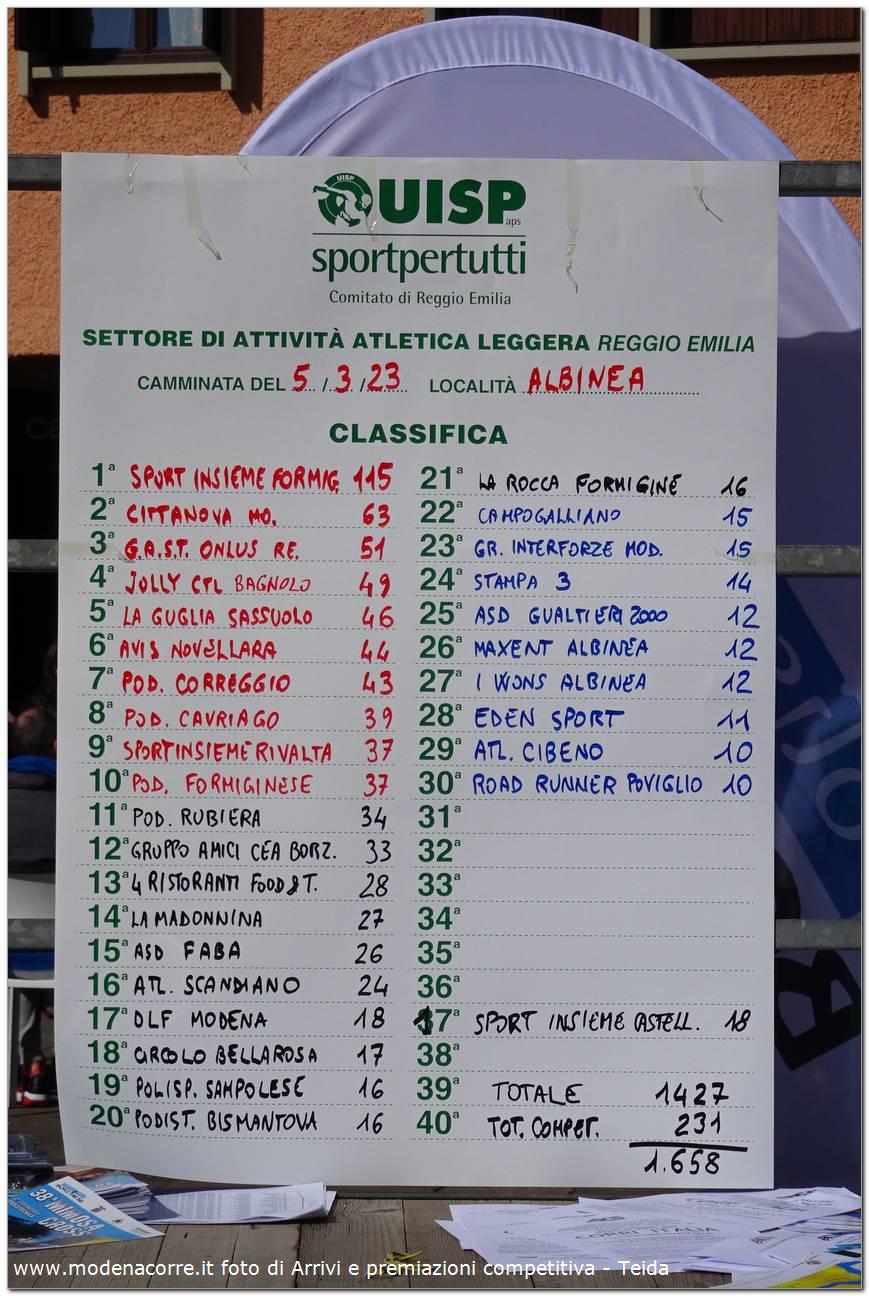 UISP
UISP
aps
sportpertutti
Comitato di Reggio Emilia
SETTORE DI ATTIVITÀ ATLETICA LEGGERA REGGIO EMILIA
CAMMINATA DEL 5 / 3 / 23 LOCALITÀ ALBINEA
CLASSIFICA
1ª SPORT INSIEME FORMIG. 115
2ª CITTANOVA MO. 63
3ª G.A.S.T. ONLUS RE. 51
4ª JOLLY CTL BAGNOLO 49
5ª LA GUGLIA SASSUOLO 46
6ª AVIS NOVELLARA 44
7ª POD. CORREGGIO 43
8ª POD. CAVRIAGO 39
9ª SPORTINSIEME RIVALTA 37
10ª POD. FORMIGINESE 37
11ª POD. RUBIERA 34
12ª GRUPPO AMICI CEA BORZ. 33
13ª 4 RISTORANTI FOOD & T. 28
14ª LA MADONNINA 27
15ª ASD FABA 26
16ª ATL. SCANDIANO 24
17ª DLF MODENA 18
18ª CIRCOLO BELLAROSA 17
19ª POLISP. SAMPOLESE 16
20ª PODIST. BISMANTOVA 16
21ª LA ROCCA FORMIGINE 16
22ª CAMPOGALLIANO 15
23ª GR. INTERFORZE MOD. 15
24ª STAMPA 3 14
25ª ASD GUALTIERI 2000 12
26ª MAXENT ALBINEA 12
27ª I WONS ALBINEA 12
28ª EDEN SPORT 11
29ª ATL. CIBENO 10
30ª ROAD RUNNER POVIGLIO 10
31ª
32ª
33ª
34ª
35ª
36ª
17ª SPORT INSIEME CASTELL. 18
38ª
39ª TOTALE 1427
40ª TOT. COMPET. 231
1.658
38ª MIMOSA
CROSS
www.modenacorre.it foto di Arrivi e premiazioni competitiva - Teida